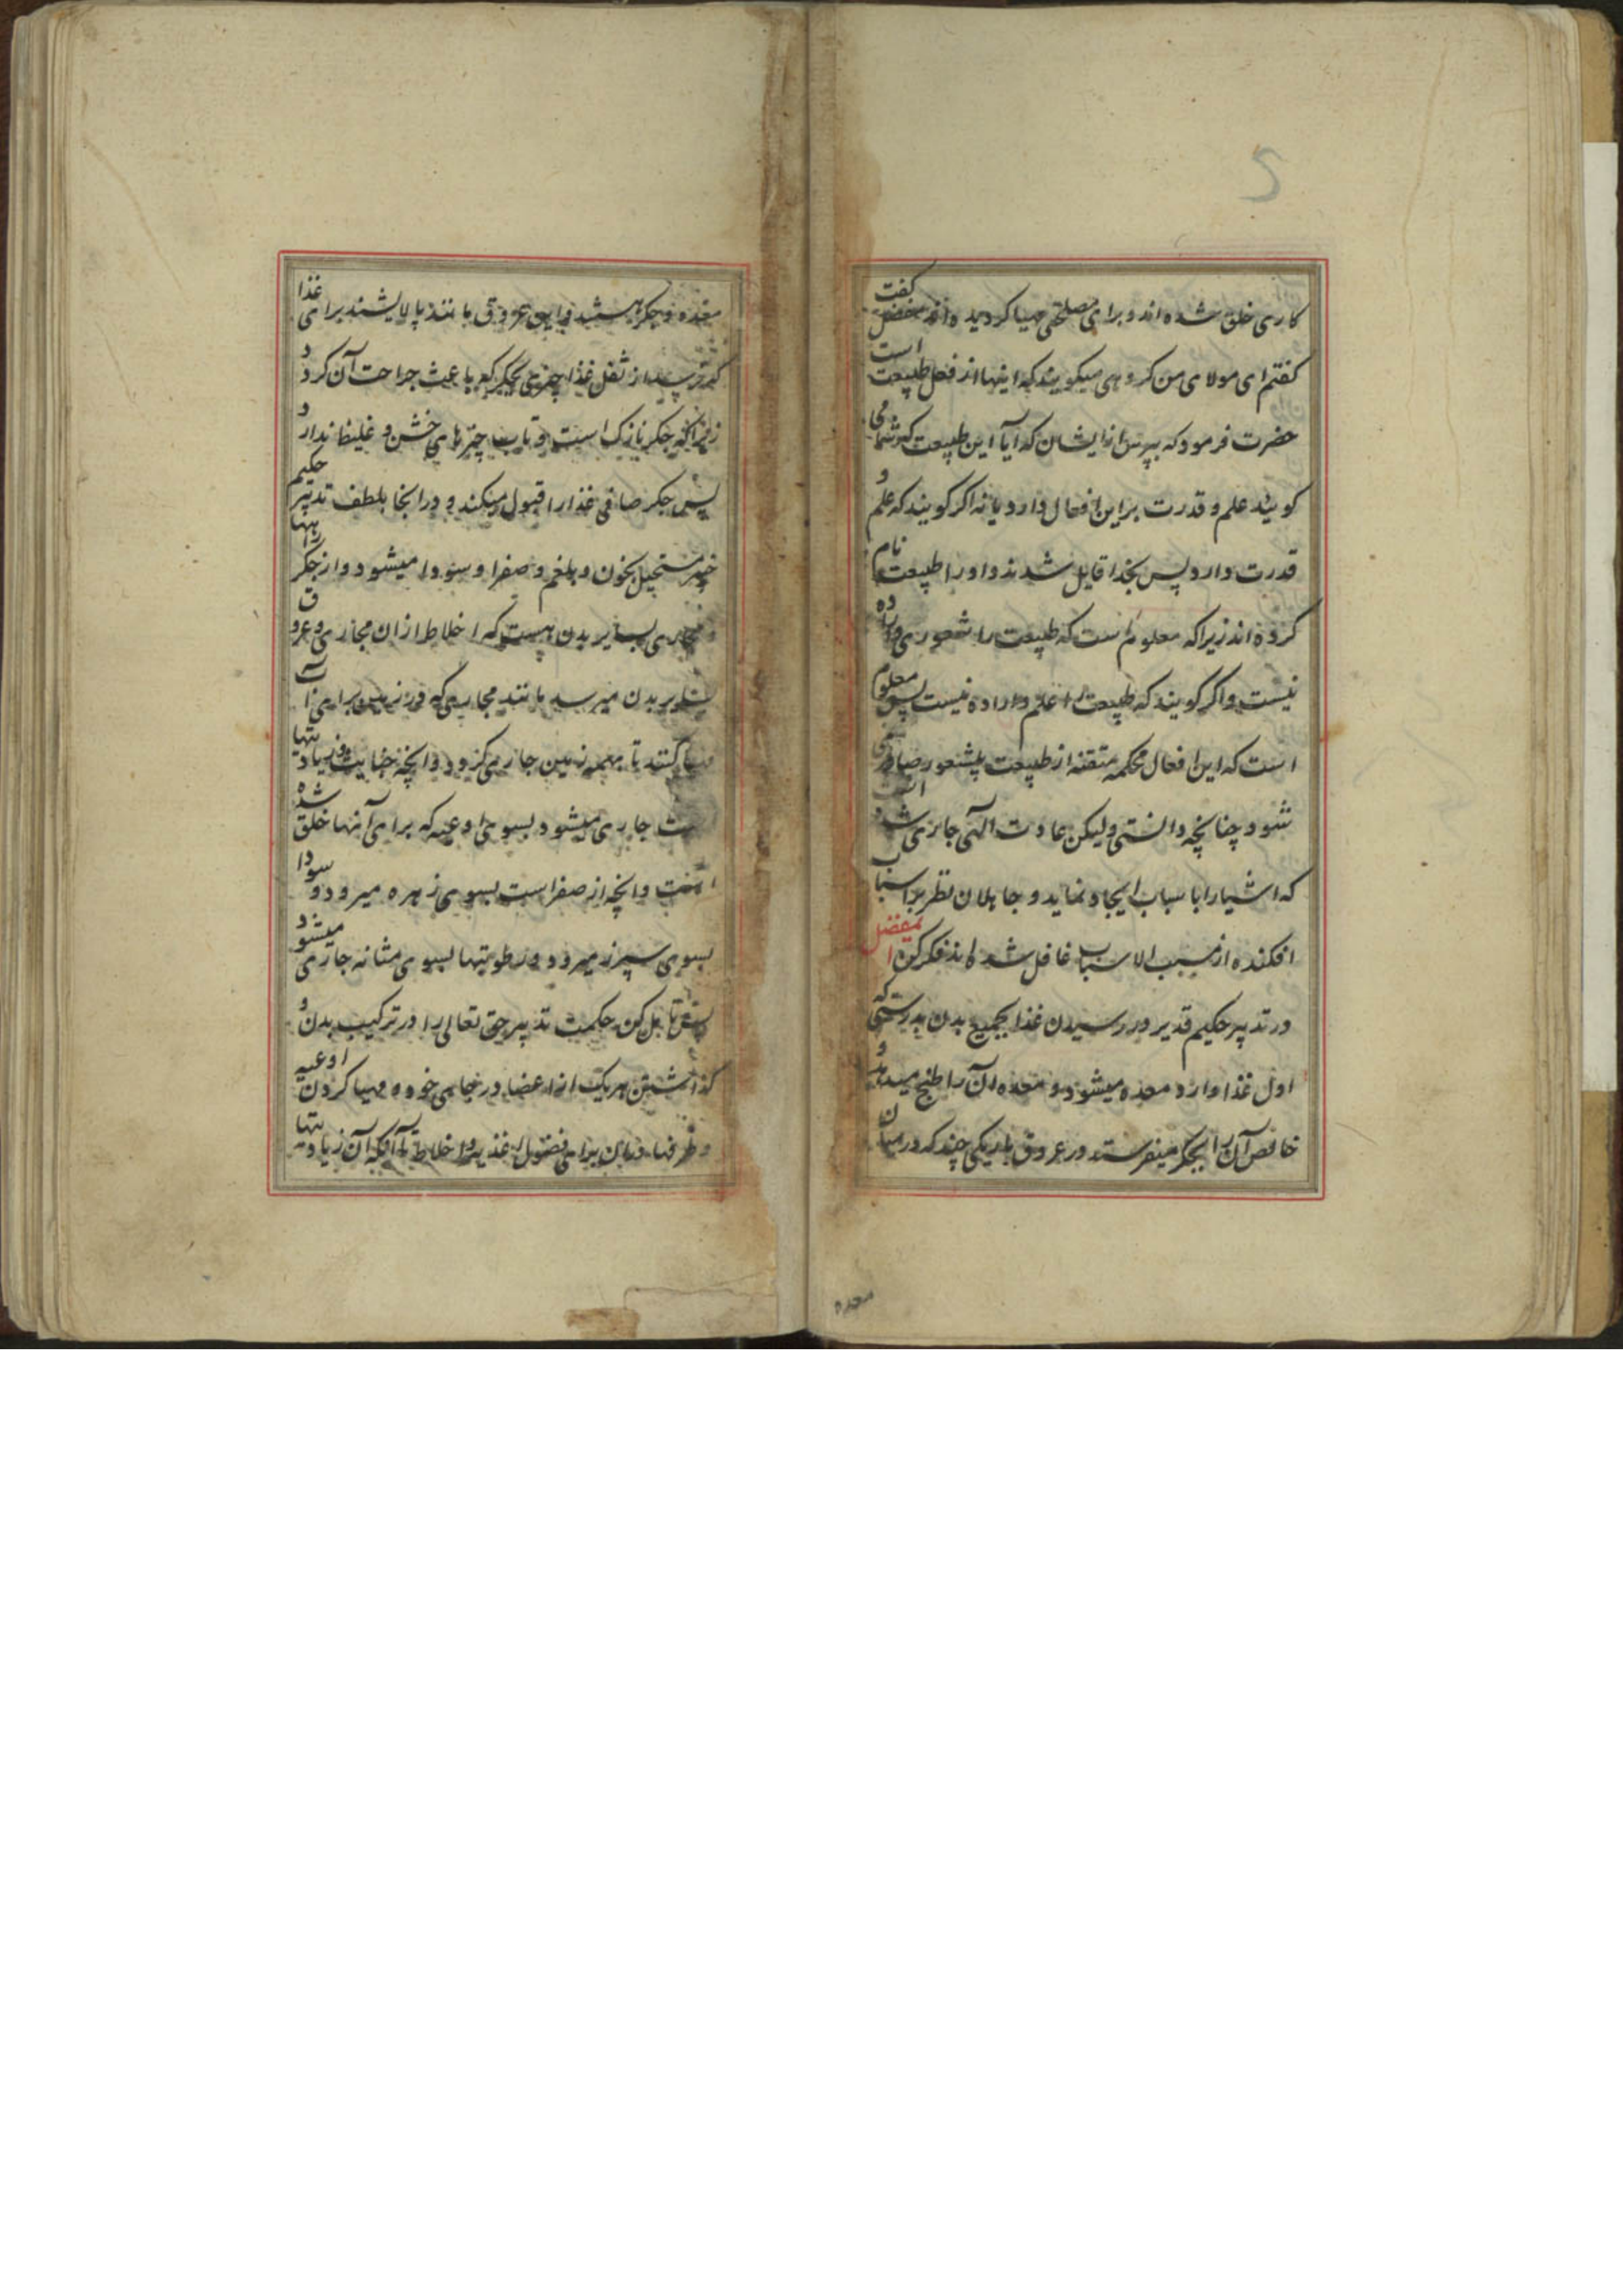 کاری خلق شده‌اند و برای مصلحتی مهیا کردیده‌اند مفضل کفت
کفتم ای مولای من کروهی میکویند که اینها از فعل طبیعت است
حضرت فرمود که بپرس از ایشان که آیا این طبیعت که شما می
کویند علم و قدرت بر این افعال دارد یا نه اکر کویند که علم و
قدرت دارد پس بخدا قایل شدند و او را طبیعت نام
کرده‌اند زیرا که معلوم است که طبیعت را شعوری و اراده
نیست و اکر کویند که طبیعت را علم و اراده نیست پس معلوم
است که این افعال محکمه متقنه از طبیعت بیشعور صادر نمی
شود چنانچه دانستی ولیکن عادت الهی جاری شده است
که اشیا را با سباب ایجاد نماید و جاهلان نظر بر اسباب
افکنده از مسبب الاسباب غافل شده‌اند فکر کن ای مفضل
در تدبیر حکیم قدیر در رسیدن غذا بجمیع بدن بدرستی که
اول غذا وارد معده میشود و معده آن را طبخ میدهد و
خالص آن را بجکر میفرستد در عروق باریکی چند که در میان
معده
معده و جکر هستند و این عروق مانند پالایشند برای غذا
که نرسد از ثقل غذا چیزی بجکر که باعث جراحت آن کردد
زیرا که جکر نازک است و تاب چیزهای خشن و غلیظ ندارد
پس جکر صافی غذا را قبول میکند و در انجا بلطف تدبیر حکیم
خبیر مستحیل بخون و بلغم و صفرا و سودا میشود و از جکر راهها
و مجاری بسایر بدن هست که اخلاط از ان مجاری و عروق
بسایر بدن میرسد مانند مجاریی که در زمین برای آب
مهیا کنند تا بهمه زمین جاری کردد و انچه خباثت و زیادتیها
ست جاری میشود بسوی اوعیه که برای آنها خلق شده
است و انچه از صفراست بسوی زهره میرود و سودا
بسوی سپرز میرود و رطوبتها بسوی مثانه جاری میشود
پس تامل کن حکمت تدبیر حق تعالی را در ترکیب بدن و
کذاشتن هر یک از اعضا در جای خود و مهیا کردن اوعیه
و ظرفها در بدن برای فضول اغذیه و اخلاط تا آنکه آن زیادتیها